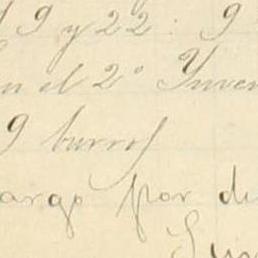 19 y 22: 9
n el 2º Inven
9 burros
argo por di